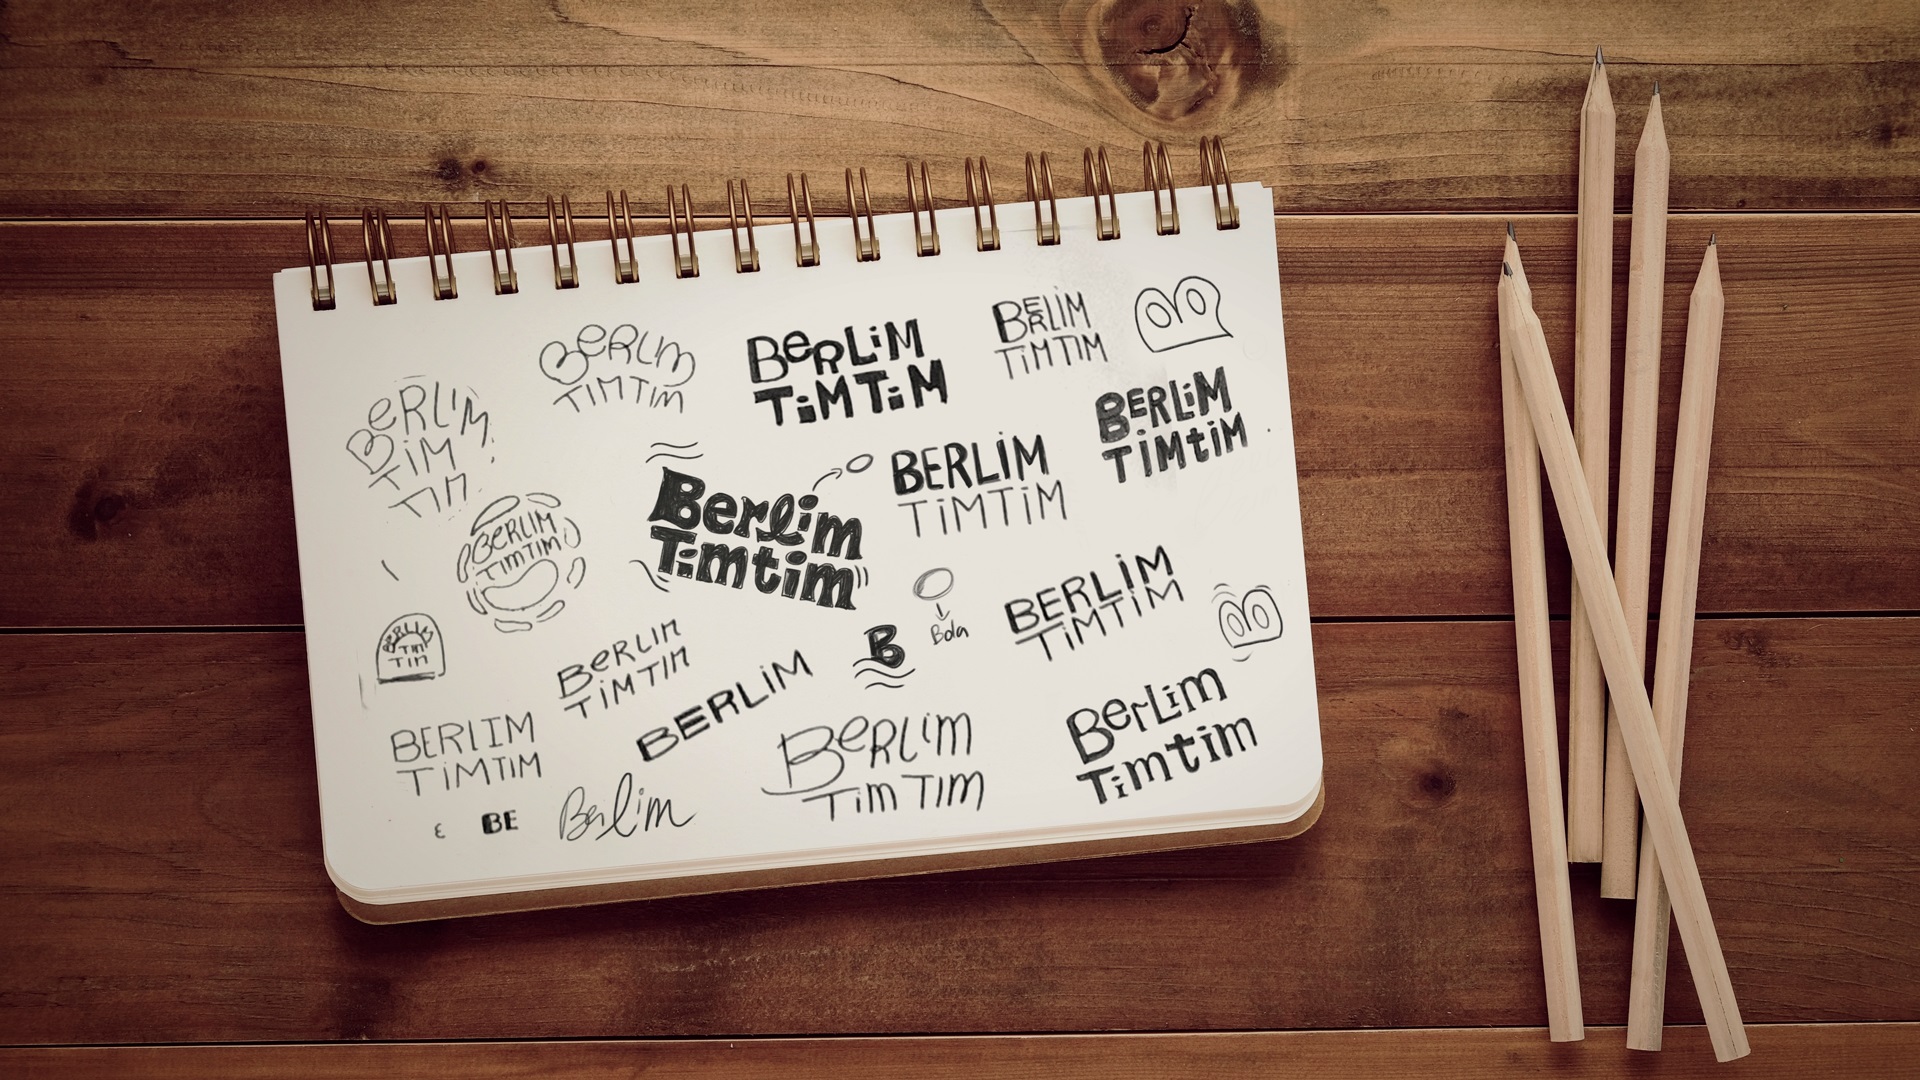 BeRLIM
TIMTIM
BeRLiM
TiMTiM
BERLiM
TiMTiM
BeRLI'M
TIM
TIM
BERLiM
TiMtiM
BERLiM
TiMTiM
Berlim
Timtim
BERLIM
TimTiM
BERLiM
TiMTiM
Bola
B
BERLIM
TIM
TIM
BeRLIM
TiMTIM
BERLiM
Berlim
Timtim
BERLIM
TiMTIM
BeRLiM
Tim TIM
ε
BE
Berlim